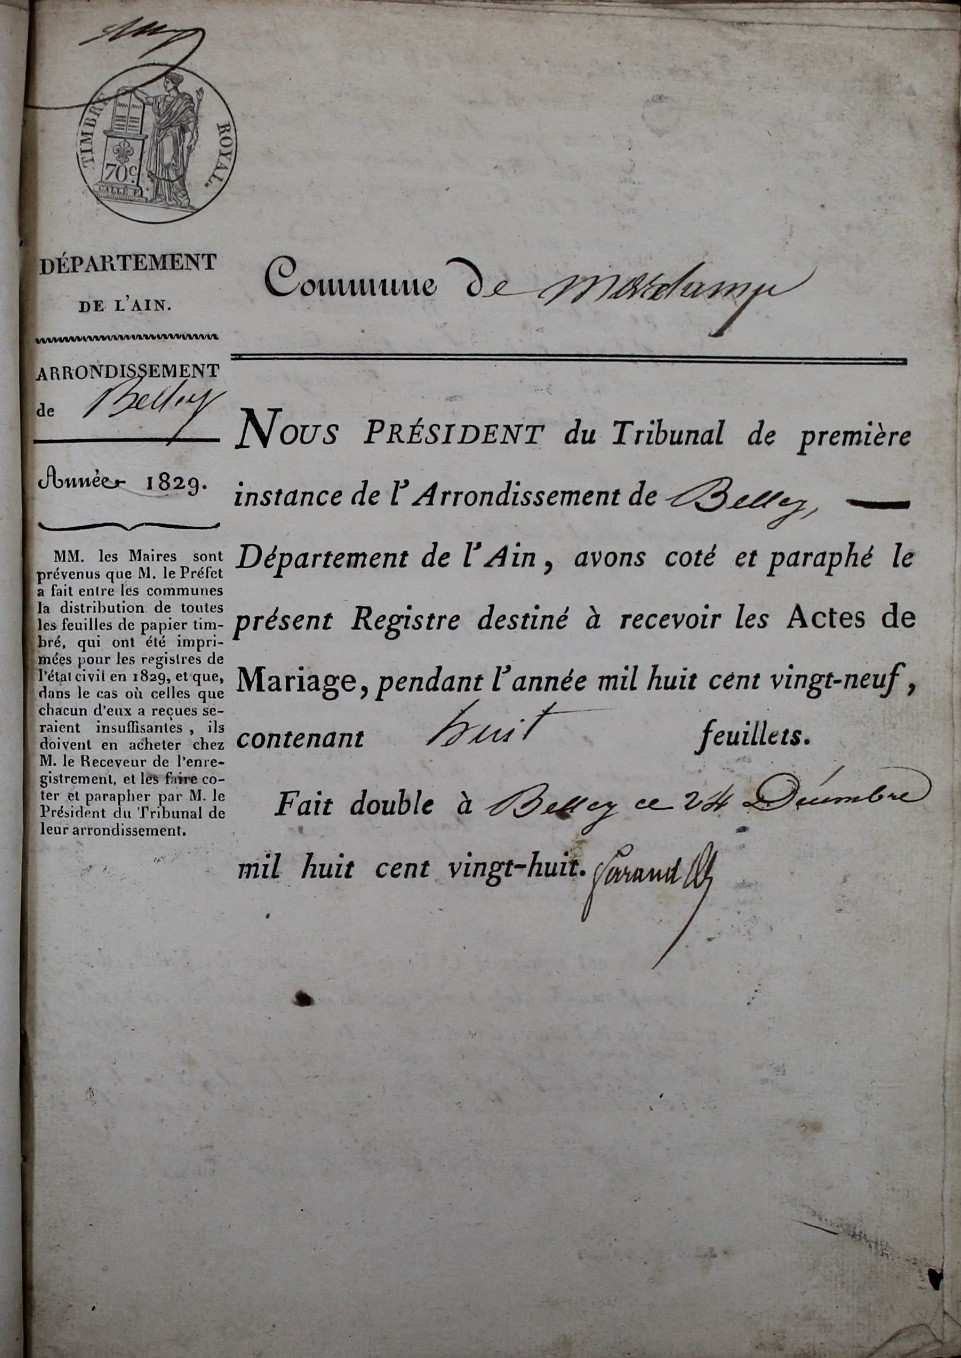 TIMBRE ROYAL.
70c
DÉPARTEMENT
DE L'AIN.
ARRONDISSEMENT
de Belley
Année 1829.
MM. les Maires sont
prévenus que M. le Préfet
a fait entre les communes
la distribution de toutes
les feuilles de papier tim-
bré, qui ont été impri-
mées pour les registres de
l'état civil en 1829, et que,
dans le cas où celles que
chacun d'eux a reçues se-
raient insuffisantes, ils
doivent en acheter chez
M. le Receveur de l'enre-
gistrement, et les faire co-
ter et parapher par M. le
Président du Tribunal de
leur arrondissement.
Commune de
NOUS PRÉSIDENT du Tribunal de première
instance de l'Arrondissement de Belley,
Département de l'Ain, avons coté et paraphé le
présent Registre destiné à recevoir les Actes de
Mariage, pendant l'année mil huit cent vingt-neuf,
contenant huit feuillets.
Fait double à Belley ce 24 Décembre
mil huit cent vingt-huit.